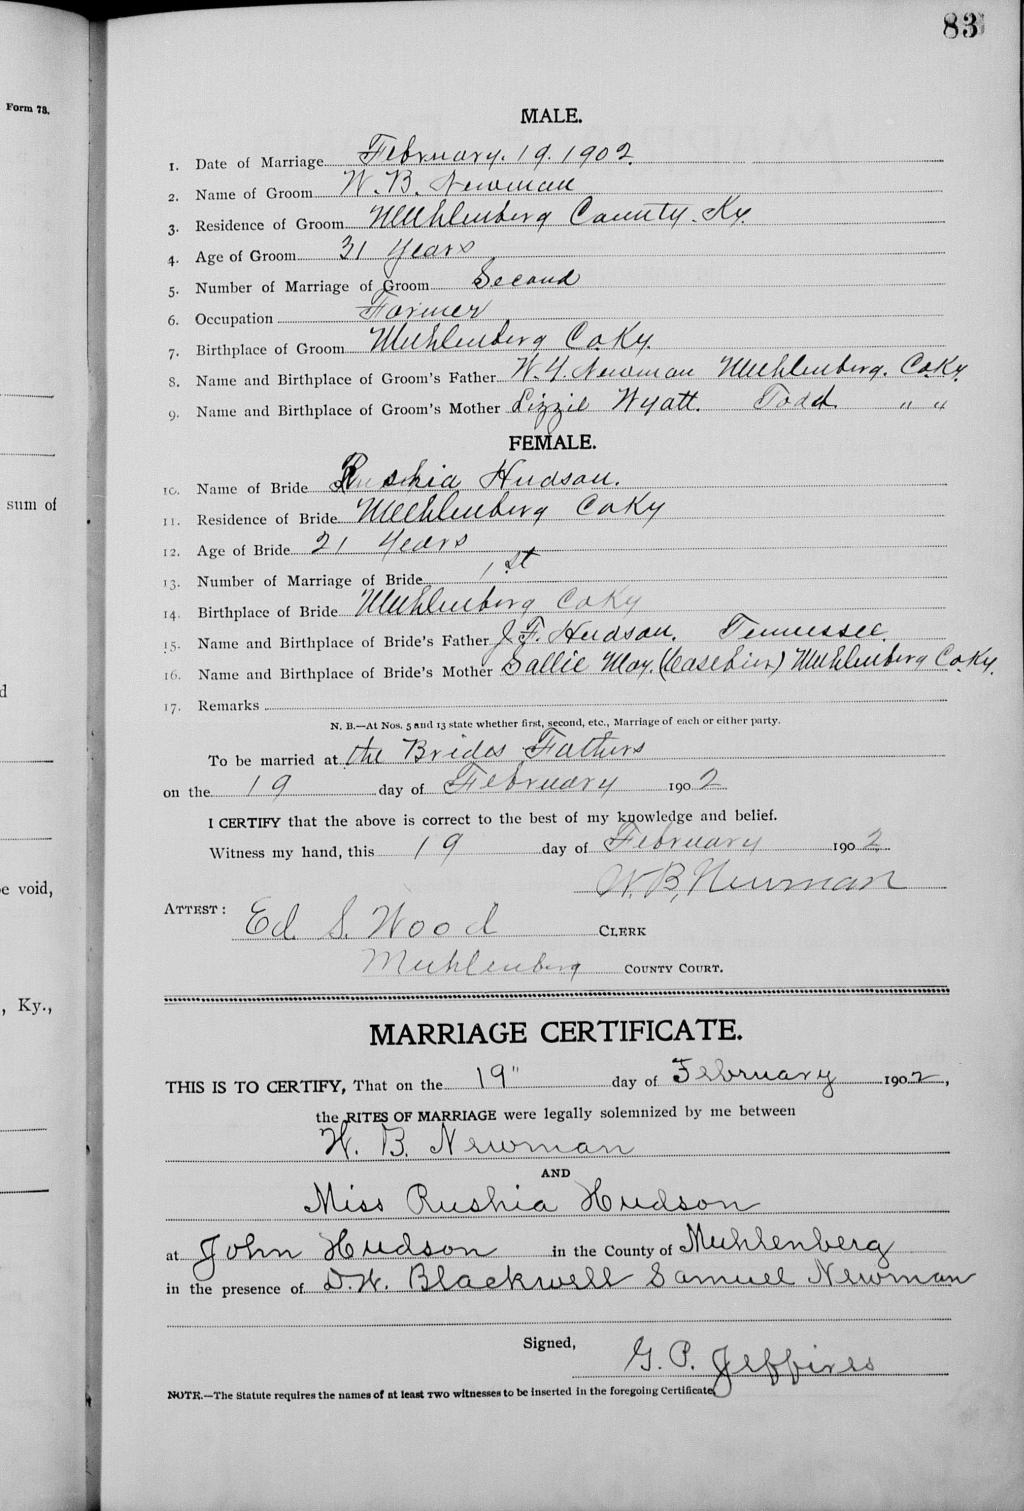 83
Form 78.
MALE.
1. Date of Marriage February. 19. 1902.
2. Name of Groom W. B. Newman
3. Residence of Groom Muhlenberg County. Ky.
4. Age of Groom 31 Years
5. Number of Marriage of Groom Second
6. Occupation Farmer
7. Birthplace of Groom Muhlenberg Co.Ky.
8. Name and Birthplace of Groom's Father W. Y. Newman Muhlenberg. Co.Ky.
9. Name and Birthplace of Groom's Mother Lizzie Wyatt. Todd " "
FEMALE.
10. Name of Bride Rushia Hudson.
sum of
11. Residence of Bride Muhlenberg Co Ky
12. Age of Bride 21 Years
13. Number of Marriage of Bride 1st
14. Birthplace of Bride Muhlenberg Co Ky
15. Name and Birthplace of Bride's Father J. F. Hudson. Tennessee.
16. Name and Birthplace of Bride's Mother Sallie May. (Casebier) Muhlenberg Co.Ky.
d
17. Remarks
N. B.—At Nos. 5 and 13 state whether first, second, etc., Marriage of each or either party.
To be married at the Brides Fathers
on the 19 day of February 1902
I CERTIFY that the above is correct to the best of my knowledge and belief.
Witness my hand, this 19 day of February 1902
W. B. Newman
e void,
ATTEST: Ed S. Wood CLERK
Muhlenberg COUNTY COURT.
, Ky.,
MARRIAGE CERTIFICATE.
THIS IS TO CERTIFY, That on the 19" day of February 1902,
the RITES OF MARRIAGE were legally solemnized by me between
W. B. Newman
AND
Miss Rushia Hudson
at John Hudson in the County of Muhlenberg
in the presence of D. W. Blackwell Samuel Newman
Signed,
G. P. Jeffires
NOTE.—The Statute requires the names of at least TWO witnesses to be inserted in the foregoing Certificate.